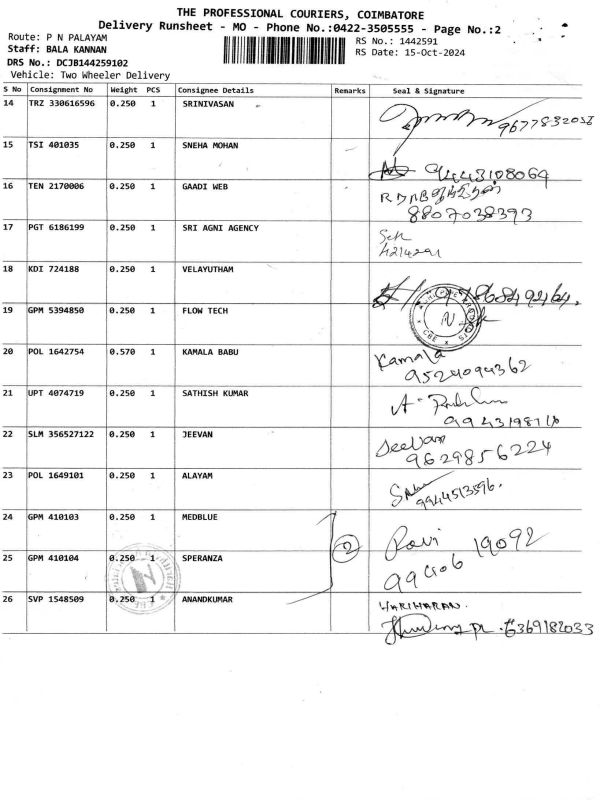 THE PROFESSIONAL COURIERS, COIMBATORE
Delivery Runsheet - MO - Phone No.:0422-3505555 - Page No.:2
Route: P N PALAYAM
RS No.: 1442591
Staff: BALA KANNAN
RS Date: 15-Oct-2024
DRS No.: DCJB144259102
Vehicle: Two Wheeler Delivery
S No Consignment No Weight PCS Consignee Details Remarks Seal & Signature
14 TRZ 330616596 0.250 1 SRINIVASAN
9677832058
15 TSI 401035 0.250 1 SNEHA MOHAN
9443108064
16 TEN 2170006 0.250 1 GAADI WEB
8807038393
17 PGT 6186199 0.250 1 SRI AGNI AGENCY
4214291
18 KDI 724188 0.250 1 VELAYUTHAM
19 GPM 5394850 0.250 1 FLOW TECH
CBE
20 POL 1642754 0.570 1 KAMALA BABU
Kamala
9524094362
21 UPT 4074719 0.250 1 SATHISH KUMAR
22 SLM 356527122 0.250 1 JEEVAN
Jeevan
9629856224
23 POL 1649101 0.250 1 ALAYAM
9944513596.
24 GPM 410103 0.250 1 MEDBLUE
2
Ravi
99406 19092
25 GPM 410104 0.250 1 SPERANZA
26 SVP 1548509 0.250 1 ANANDKUMAR
HARIHARAN.
6369182033